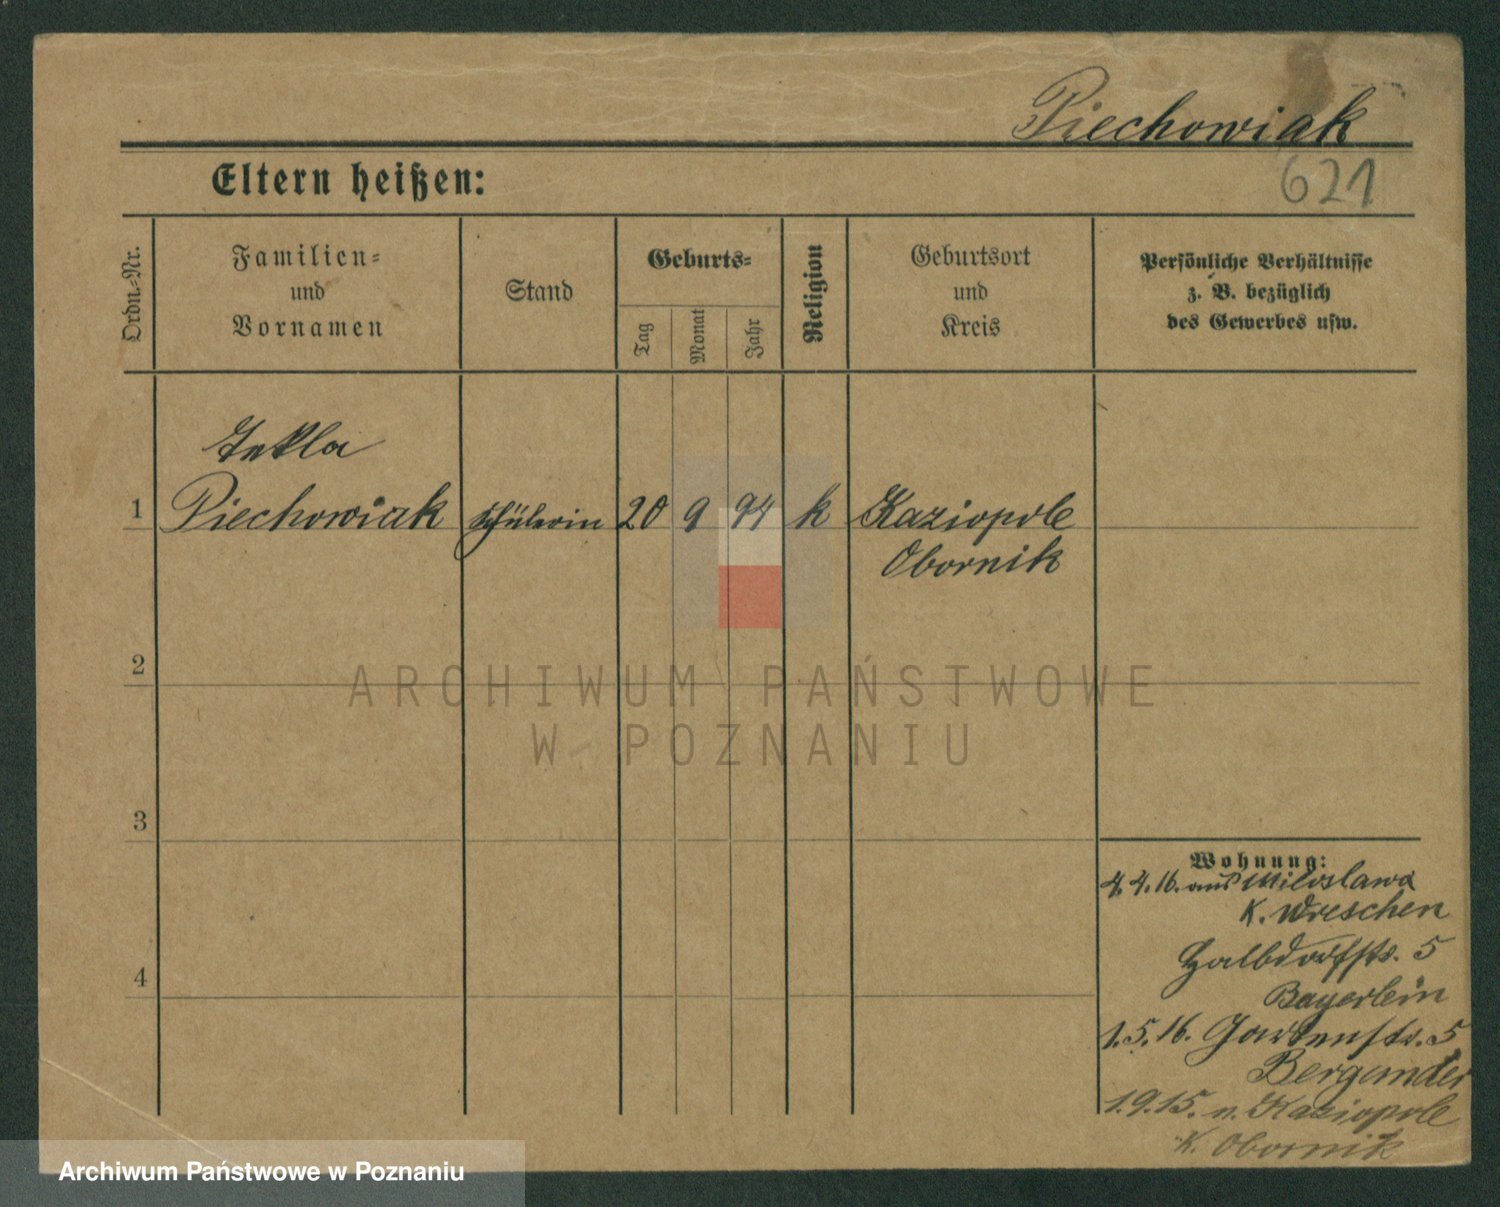 Piechowiak
621
Eltern heißen:
Ordn.-Nr.
Familien-
und
Vornamen
Stand
Geburts-
Tag
Monat
Jahr
Religion
Geburtsort
und
Kreis
Persönliche Verhältnisse
z. B. bezüglich
des Gewerbes usw.
Tekla
1 Piechowiak Schülerin 20 9 94 k Kaziopole
Obornik
2
ARCHIWUM PAŃSTWOWE
W POZNANIU
3
Wohnung:
4.4.16. aus Miloslawa
K. Wreschen
4
Halbdorfstr. 5
Bayerlein
1.5.16. Gartenstr. 5
Bergander
1.9.15. n. Kaziopole
K. Obornik
Archiwum Państwowe w Poznaniu